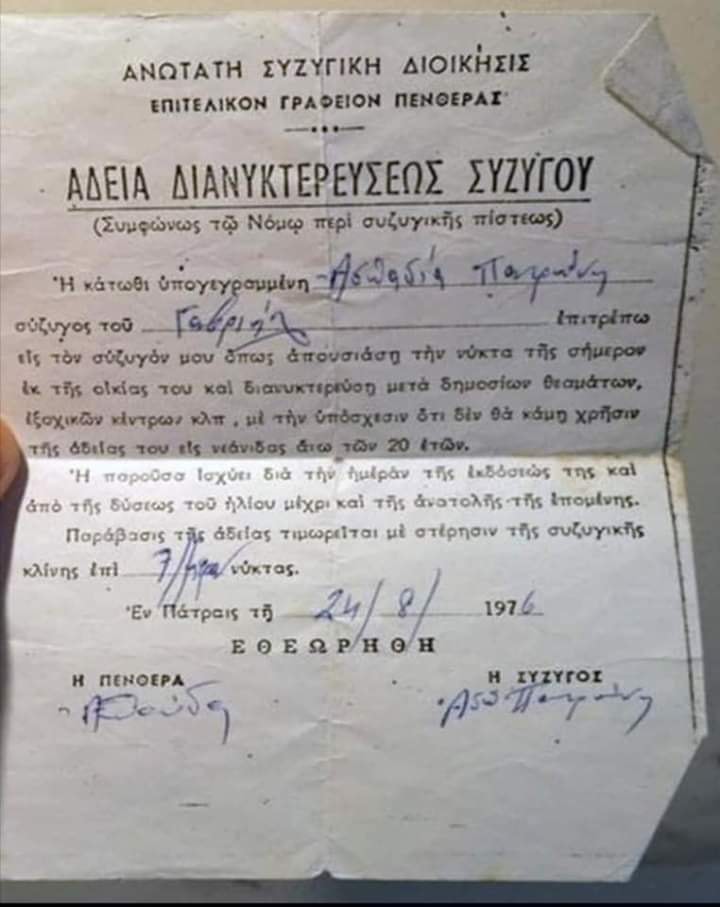 ΑΝΩΤΑΤΗ ΣΥΖΥΓΙΚΗ ΔΙΟΙΚΗΣΙΣ
ΕΠΙΤΕΛΙΚΟΝ ΓΡΑΦΕΙΟΝ ΠΕΝΘΕΡΑΣ
ΑΔΕΙΑ ΔΙΑΝΥΚΤΕΡΕΥΣΕΩΣ ΣΥΖΥΓΟΥ
(Συμφώνως τῷ Νόμῳ περί συζυγικῆς πίστεως)
Ἡ κάτωθι ὑπογεγραμμένη
σύζυγος τοῦ Γαβριήλ ἐπιτρέπω
εἰς τὸν σύζυγόν μου ὅπως ἀπουσιάσῃ τὴν νύκτα τῆς σήμερον
ἐκ τῆς οἰκίας του καὶ διανυκτερεύσῃ μετά δημοσίων θεαμάτων,
ἐξοχικῶν κέντρων κλπ, μὲ τὴν ὑπόσχεσιν ὅτι δὲν θὰ κάμῃ χρῆσιν
τῆς ἀδείας του εἰς νεάνιδας ἄνω τῶν 20 ἐτῶν.
Ἡ παροῦσα ἰσχύει διὰ τὴν ἡμέραν τῆς ἐκδόσεώς της καὶ
ἀπὸ τῆς δύσεως τοῦ ἡλίου μέχρι καὶ τῆς ἀνατολῆς τῆς ἑπομένης.
Παράβασις τῆς ἀδείας τιμωρεῖται μὲ στέρησιν τῆς συζυγικῆς
κλίνης ἐπὶ 7 νύκτας.
Ἐν Πάτραις τῇ 24/8/1976
ΕΘΕΩΡΗΘΗ
Η ΠΕΝΘΕΡΑ
Η ΣΥΖΥΓΟΣ